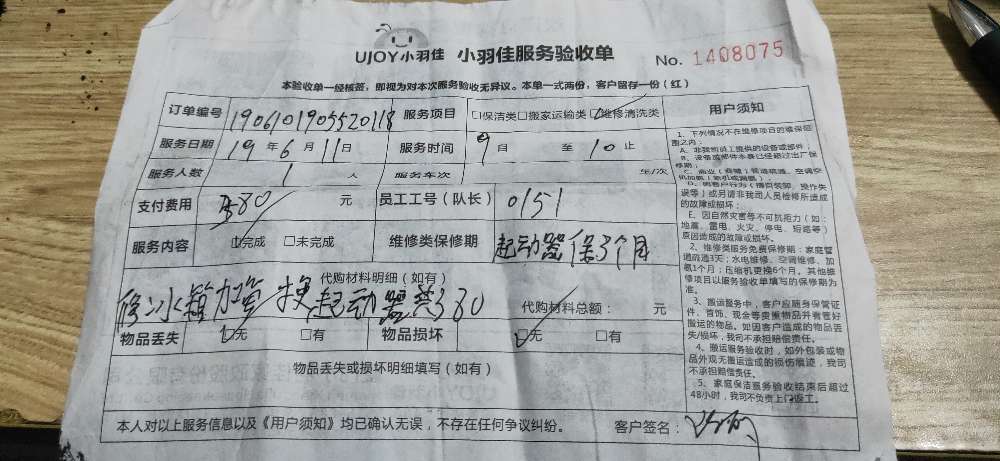 UJOY小羽佳 小羽佳服务验收单 No. 1408075
本验收单一经核签，即视为对本次服务验收无异议。本单一式两份，客户留存一份（红）
订单编号 1906101905520118 服务项目 □保洁类□搬家运输类□维修清洗类 用户须知
服务日期 19 年 6 月 11 日 服务时间 9 月 至 10 止
服务人数 1 人 服务车次 车/次
支付费用 380 员工工号（队长） 0151
服务内容 □完成 □未完成 维修类保修期 起动器保3个月
代购材料明细（如有）
修冰箱加 换起动器共380 代购材料总额： 元
物品丢失 □无 □有 物品损坏 □无 □有
物品丢失或损坏明细填写（如有）
本人对以上服务信息以及《用户须知》均已确认无误，不存在任何争议纠纷。 客户签名：
1、下列情况不在维修项目的维保范
围之内：
A、非我司员工提供的设备或部件；
B、设备或部件本身已经超过出厂保
修期；
误等）或另请非我司人员检修所造成
的故障或损坏；
E、因自然灾害等不可抗拒力（如：
地震、雷电、火灾、停电、短路等）
原因造成的故障或损坏。
2、维修类服务免费保修期：家庭管
道疏通3天；水电维修、空调维修、加
氨1个月；压缩机更换6个月。其他维
修项目以服务验收单填写的保修期为
准。
3、搬运服务中，客户应随身保管证
件、首饰、现金等贵重物品并看管好
搬运的物品。如因客户造成的物品丢
失/损坏，我司不承担赔偿责任。
4、搬运服务验收时，如外包装或物
品外观无搬运造成的损伤痕迹，我司
不承担赔偿责任。
5、家庭保洁服务验收结束后超过
48小时，我司不负责上门返工。